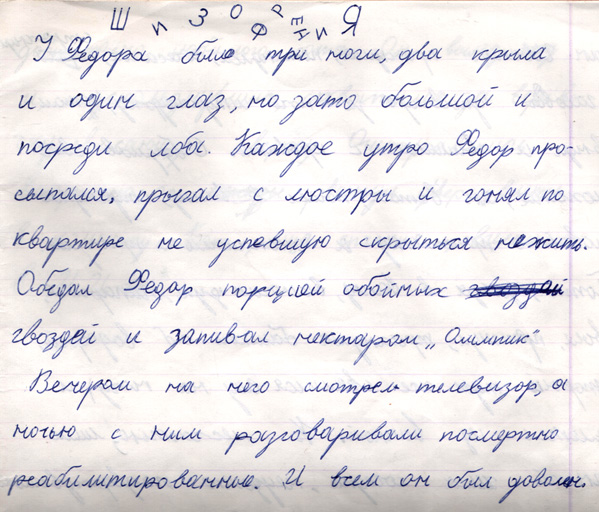 ШИЗОФРЕНИЯ
У Федора было три ноги, два крыла
и один глаз, но зато большой и
посреди лба. Каждое утро Федор про-
сыпался, прыгал с люстры и гонял по
квартире не успевшую скрыться нежить.
Обедал Федор порцией обойных гвоздей
гвоздей и запивал нектаром „Олимпик"
Вечером на него смотрел телевизор, а
ночью с ним разговаривали посмертно
реабилитированные. И всем он был доволен.